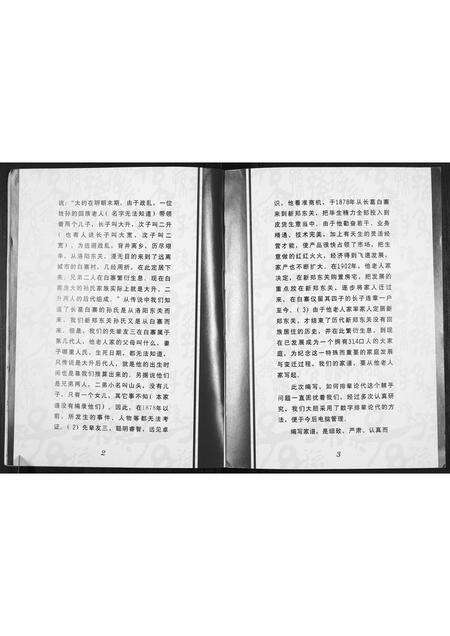 说："大约在明朝末期，由于战乱，一位
姓孙的回族老人（名字无法知道）带领
着两个儿子，长子叫大升，次子叫二升
（也有人说长子叫大宽，次子叫二
宽），为逃避战乱，背井离乡，历尽艰
辛，从洛阳东关，漫无目的来到了远离
城市的白寨村，几经周折，在此定居下
来，兄弟二人在白寨繁衍生息，现在白
寨庞大的孙氏家族实际上就是大升、二
升两人的后代组成。"从传说中我们知
道了长葛白寨的孙氏是从洛阳东关而
来，我们新郑东关孙氏又是从白寨而
来。但是，我们的先辈友三在白寨属于
第几代人，他老人家的父母叫什么，妻
子哪里人氏，生死日期，都无法知道，
只传说是大升后代人，就是他的出生时
间也是靠我们推算出来的。另据说他们
是兄弟两人，二弟小名叫山头，没有儿
子，只有一个女儿，其它事不知（本家
谱没有编录他们）。因此，在1878年以
前，所发生的事件、人物等都无法考
证。（2）先辈友三，聪明睿智，远见卓
2
识，他看准商机，于1878年从长葛白寨
来到新郑东关，把毕生精力全部投入到
皮货生意当中，由于他勤奋若干，业务
精通，技术完美，加上有天生的灵活经
营才能，使产品很快占领了市场，把生
意做的红红火火，经济得到飞速发展，
家产也不断扩大，在1902年，他老人家
决定，在新郑东关购置房宅，把发展的
重点放在新郑东关，逐步将家人迁过
来，在白寨仅留其四子的长子连章一户
至今。（3）由于他老人家举家人定居新
郑东关，才结束了历代新郑东关没有回
族居住的历史，并在此繁衍生息，到现
在已发展成为一个拥有314口人的大家
庭，为纪念这一特殊而重要的家庭发展
与变迁过程，我们的家谱，要从他老人
家写起。
此次编写，如何排辈论代这个棘手
问题一直困扰着我们，经过多次认真研
究，我们大胆采用了数字排辈论代的方
法，便于今后电脑管理。
编写家谱，是细致、严肃、认真而
3